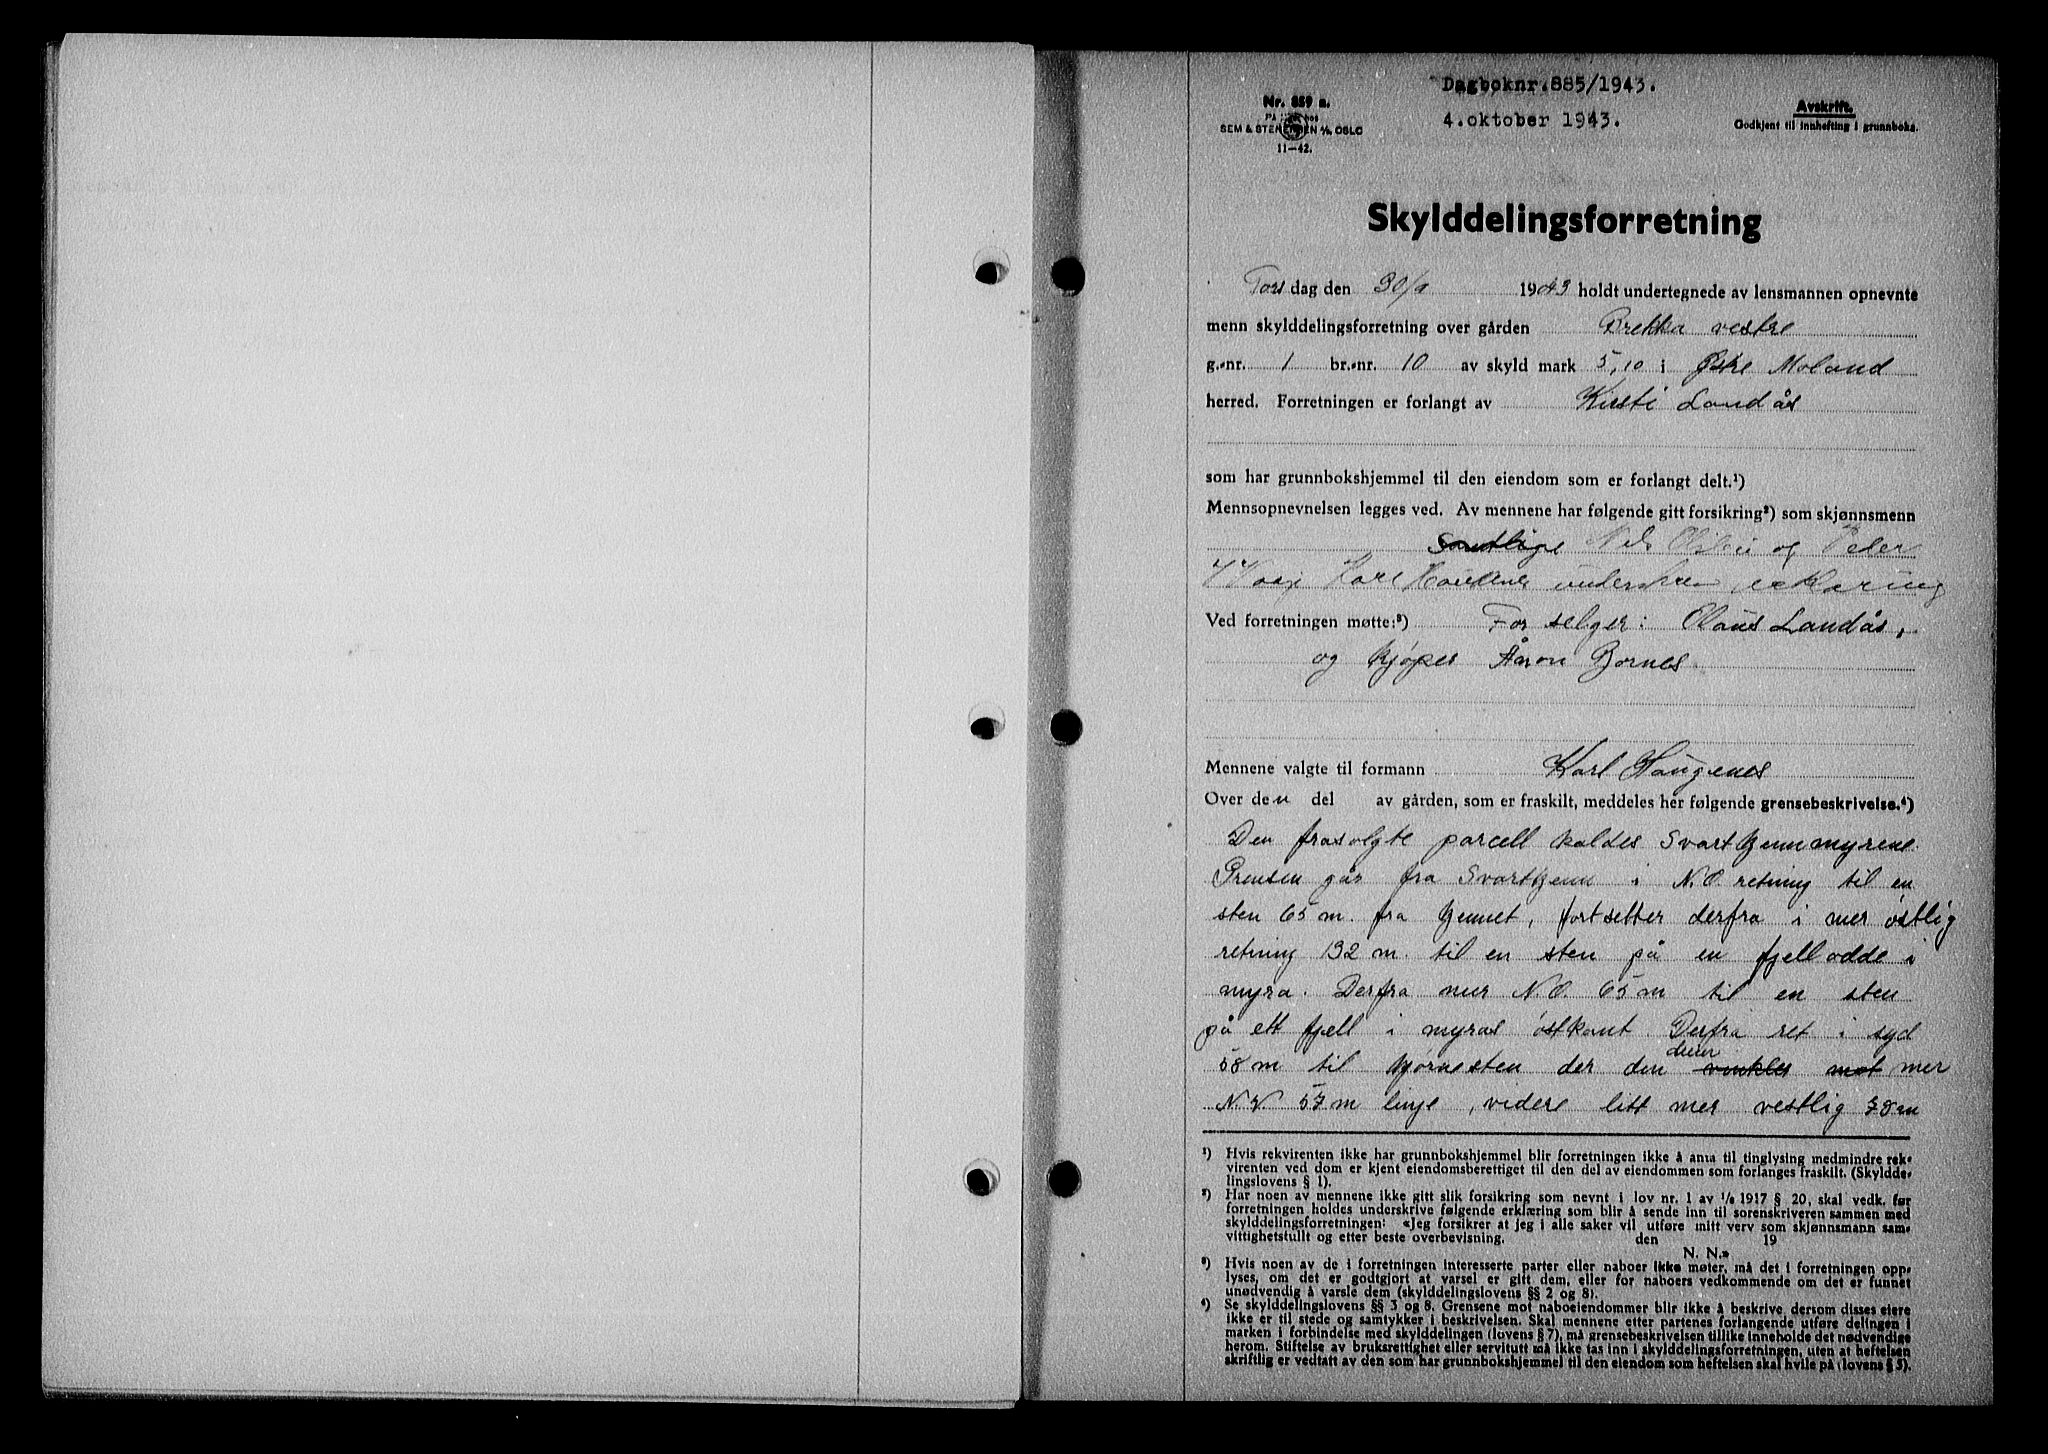 Dagboknr.885/1943.
4.oktober 1943.
Nr. 859 a.
SEM & STENERSEN A/S OSLO
11—42.
Avskrift.
Godkjent til innhefting i grunnboka.
Skylddelingsforretning
Torsdag den 30/9 1943 holdt undertegnede av lensmannen opnevnte
menn skylddelingsforretning over gården Brekka vestre
g.-nr. 1 br.-nr. 10 av skyld mark 5,10 i Østre Moland
herred. Forretningen er forlangt av Kirsti Landås
som har grunnbokshjemmel til den eiendom som er forlangt delt.¹)
Mennsopnevnelsen legges ved. Av mennene har følgende gitt forsikring²) som skjønnsmenn
Samtlige Nils Olsen og Peder
Karl Haugenes erklæring
Ved forretningen møtte:³) For selger: Olaus Landås,
og kjøper Åron Bornes.
Mennene valgte til formann Karl Haugenes
Over den del av gården, som er fraskilt, meddeles her følgende grensebeskrivelse.⁴)
Den frasolgte parcell kaldes Svarttjennmyrene.
Grensen går fra Svarttjenn i N.O. retning til en
sten 65 m. fra tjennet, fortsetter derfra i mer østlig
retning 132 m. til en sten på en fjellodde i
myra. Derfra mer N.O. 65 m til en sten
på ett fjell i myras østkant. Derfra ret i syd
58 m til hjørnesten der den dreier vinkler mot mer
N.V. 57 m linje, videre litt mer vestlig 78 m
¹) Hvis rekvirenten ikke har grunnbokshjemmel blir forretningen ikke å anta til tinglysing medmindre rek-
virenten ved dom er kjent eiendomsberettiget til den del av eiendommen som forlanges fraskilt. (Skyldde-
lingslovens § 1).
²) Har noen av mennene ikke gitt slik forsikring som nevnt i lov nr. 1 av 1/6 1917 § 20, skal vedk. før
forretningen holdes underskrive følgende erklæring som blir å sende inn til sorenskriveren sammen med
skylddelingsforretningen: «Jeg forsikrer at jeg i alle saker vil utføre mitt verv som skjønnsmann sam-
vittighetsfullt og etter beste overbevisning. den 19
N. N.»
³) Hvis noen av de i forretningen interesserte parter eller naboer ikke møter, må det i forretningen opp-
lyses, om det er godtgjort at varsel er gitt dem, eller for naboers vedkommende om det er funnet
unødvendig å varsle dem (skylddelingslovens §§ 2 og 8).
⁴) Se skylddelingslovens §§ 3 og 8. Grensene mot naboeiendommer blir ikke å beskrive, dersom disses eiere
ikke er til stede og samtykker i beskrivelsen. Skal mennene etter partenes forlangende utføre delingen i
marken i forbindelse med skylddelingen (lovens § 7), må grensebeskrivelsen tillike inneholde det nødvendige
herom. Stiftelse av bruksrettighet eller servitutt må ikke tas inn i skylddelingsforretningen, uten at heftelsen
skriftlig er vedtatt av den som har grunnbokshjemmel til den eiendom som heftelsen skal hvile på (lovens § 5).